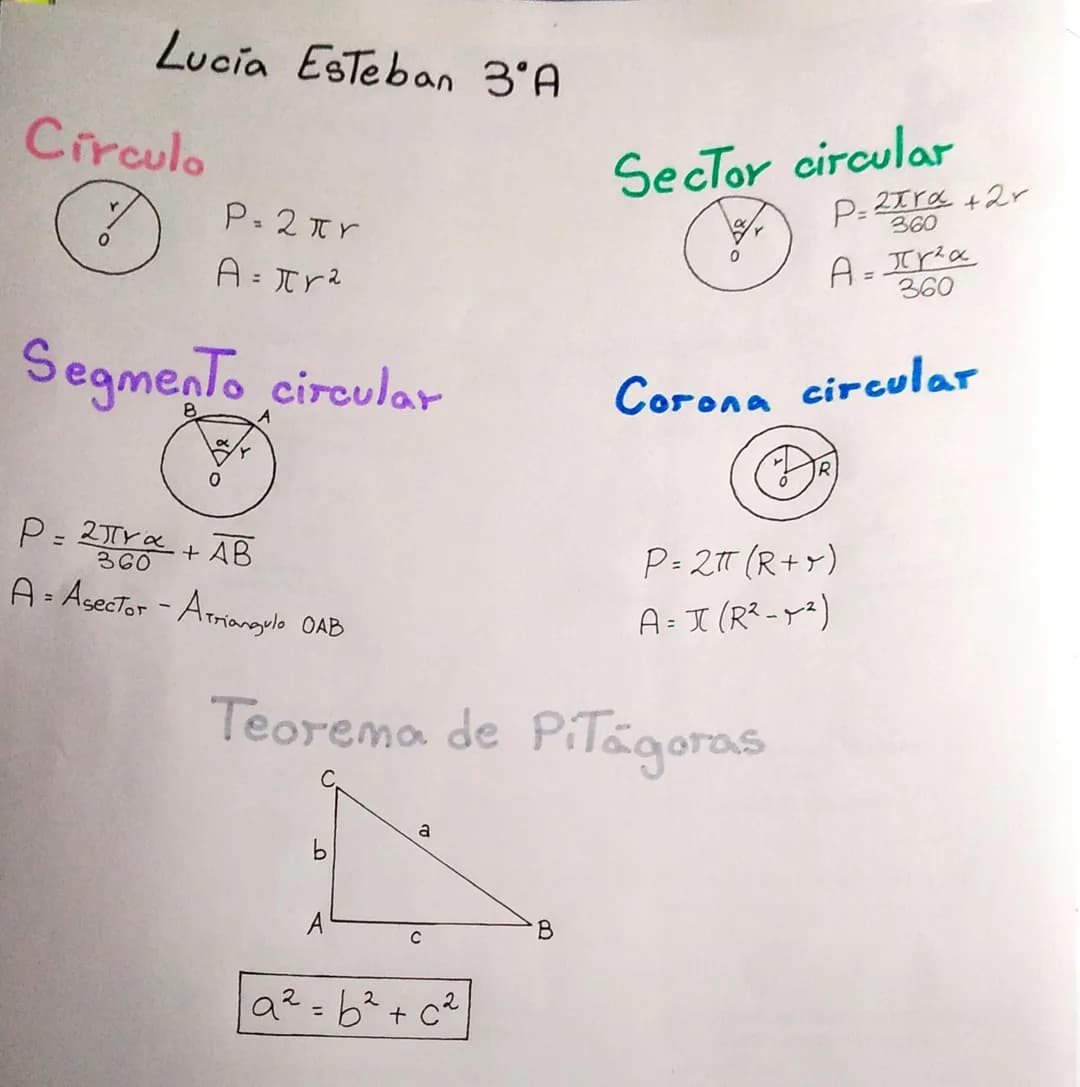 Lucía Esteban 3°A
Círculo
r
O
P = 2πr
A = πr²
Sector circular
α
r
O
P = 2πrα/360 + 2r
A = πr²α/360
Segmento circular
B
A
α
r
O
P = 2πrα/360 + A̅B̅
A = Asector - ATriangulo OAB
Corona circular
r
O
R
P = 2π (R+r)
A = π (R² - r²)
Teorema de Pitágoras
C
a
b
A
c
B
a² = b² + c²